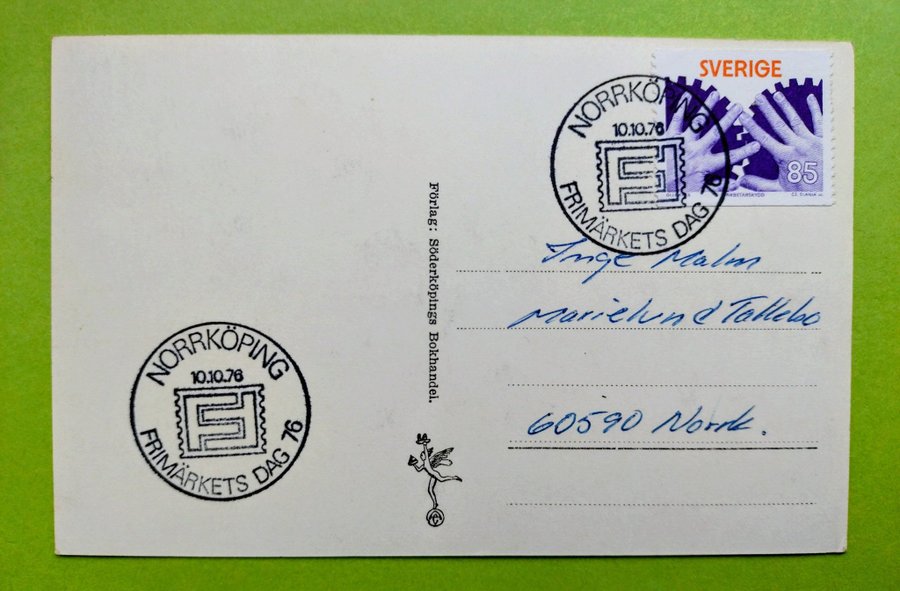 SVERIGE
85
ARBETARSKYDD
CZ. SLANIA SC.
NORRKÖPING
10.10.76
FRIMÄRKETS DAG 76
Förlag: Söderköpings Bokhandel.
Inge Malm
Marielund Tallebo
60590 Norrk.
NORRKÖPING
10.10.76
FRIMÄRKETS DAG 76